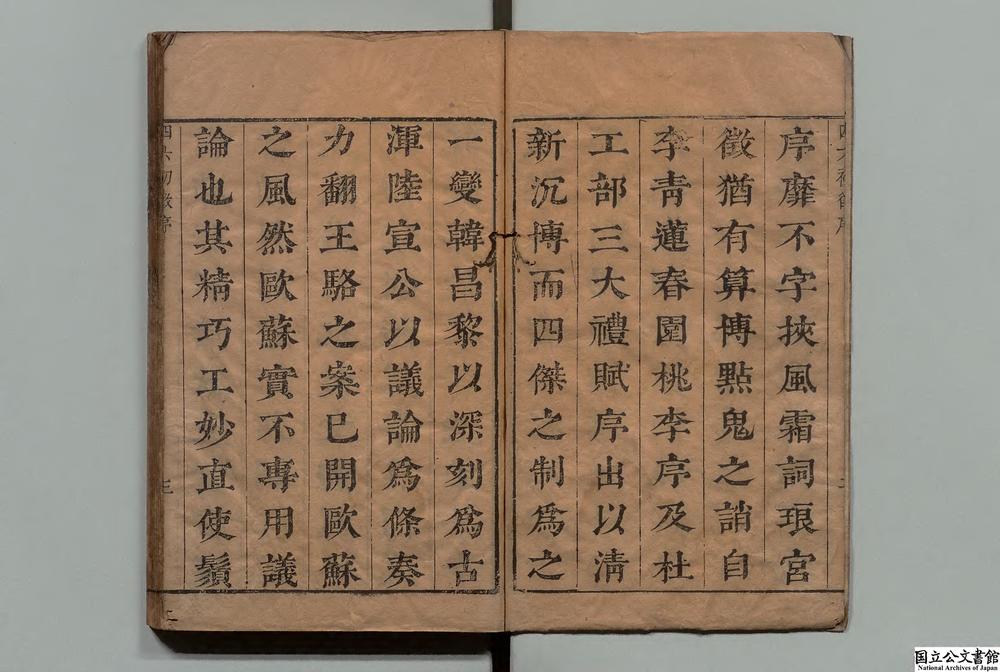 序靡不字挾風霜詞琅宮
徵猶有算博點鬼之誚自
李青蓮春園桃李序及杜
工部三大禮賦序出以淸
新沉博而四傑之制爲之
一變韓昌黎以深刻爲古
渾陸宣公以議論爲條奏
力翻王駱之案已開歐蘇
之風然歐蘇實不專用議
論也其精巧工妙直使鬚
三
国立公文書館
National Archives of Japan